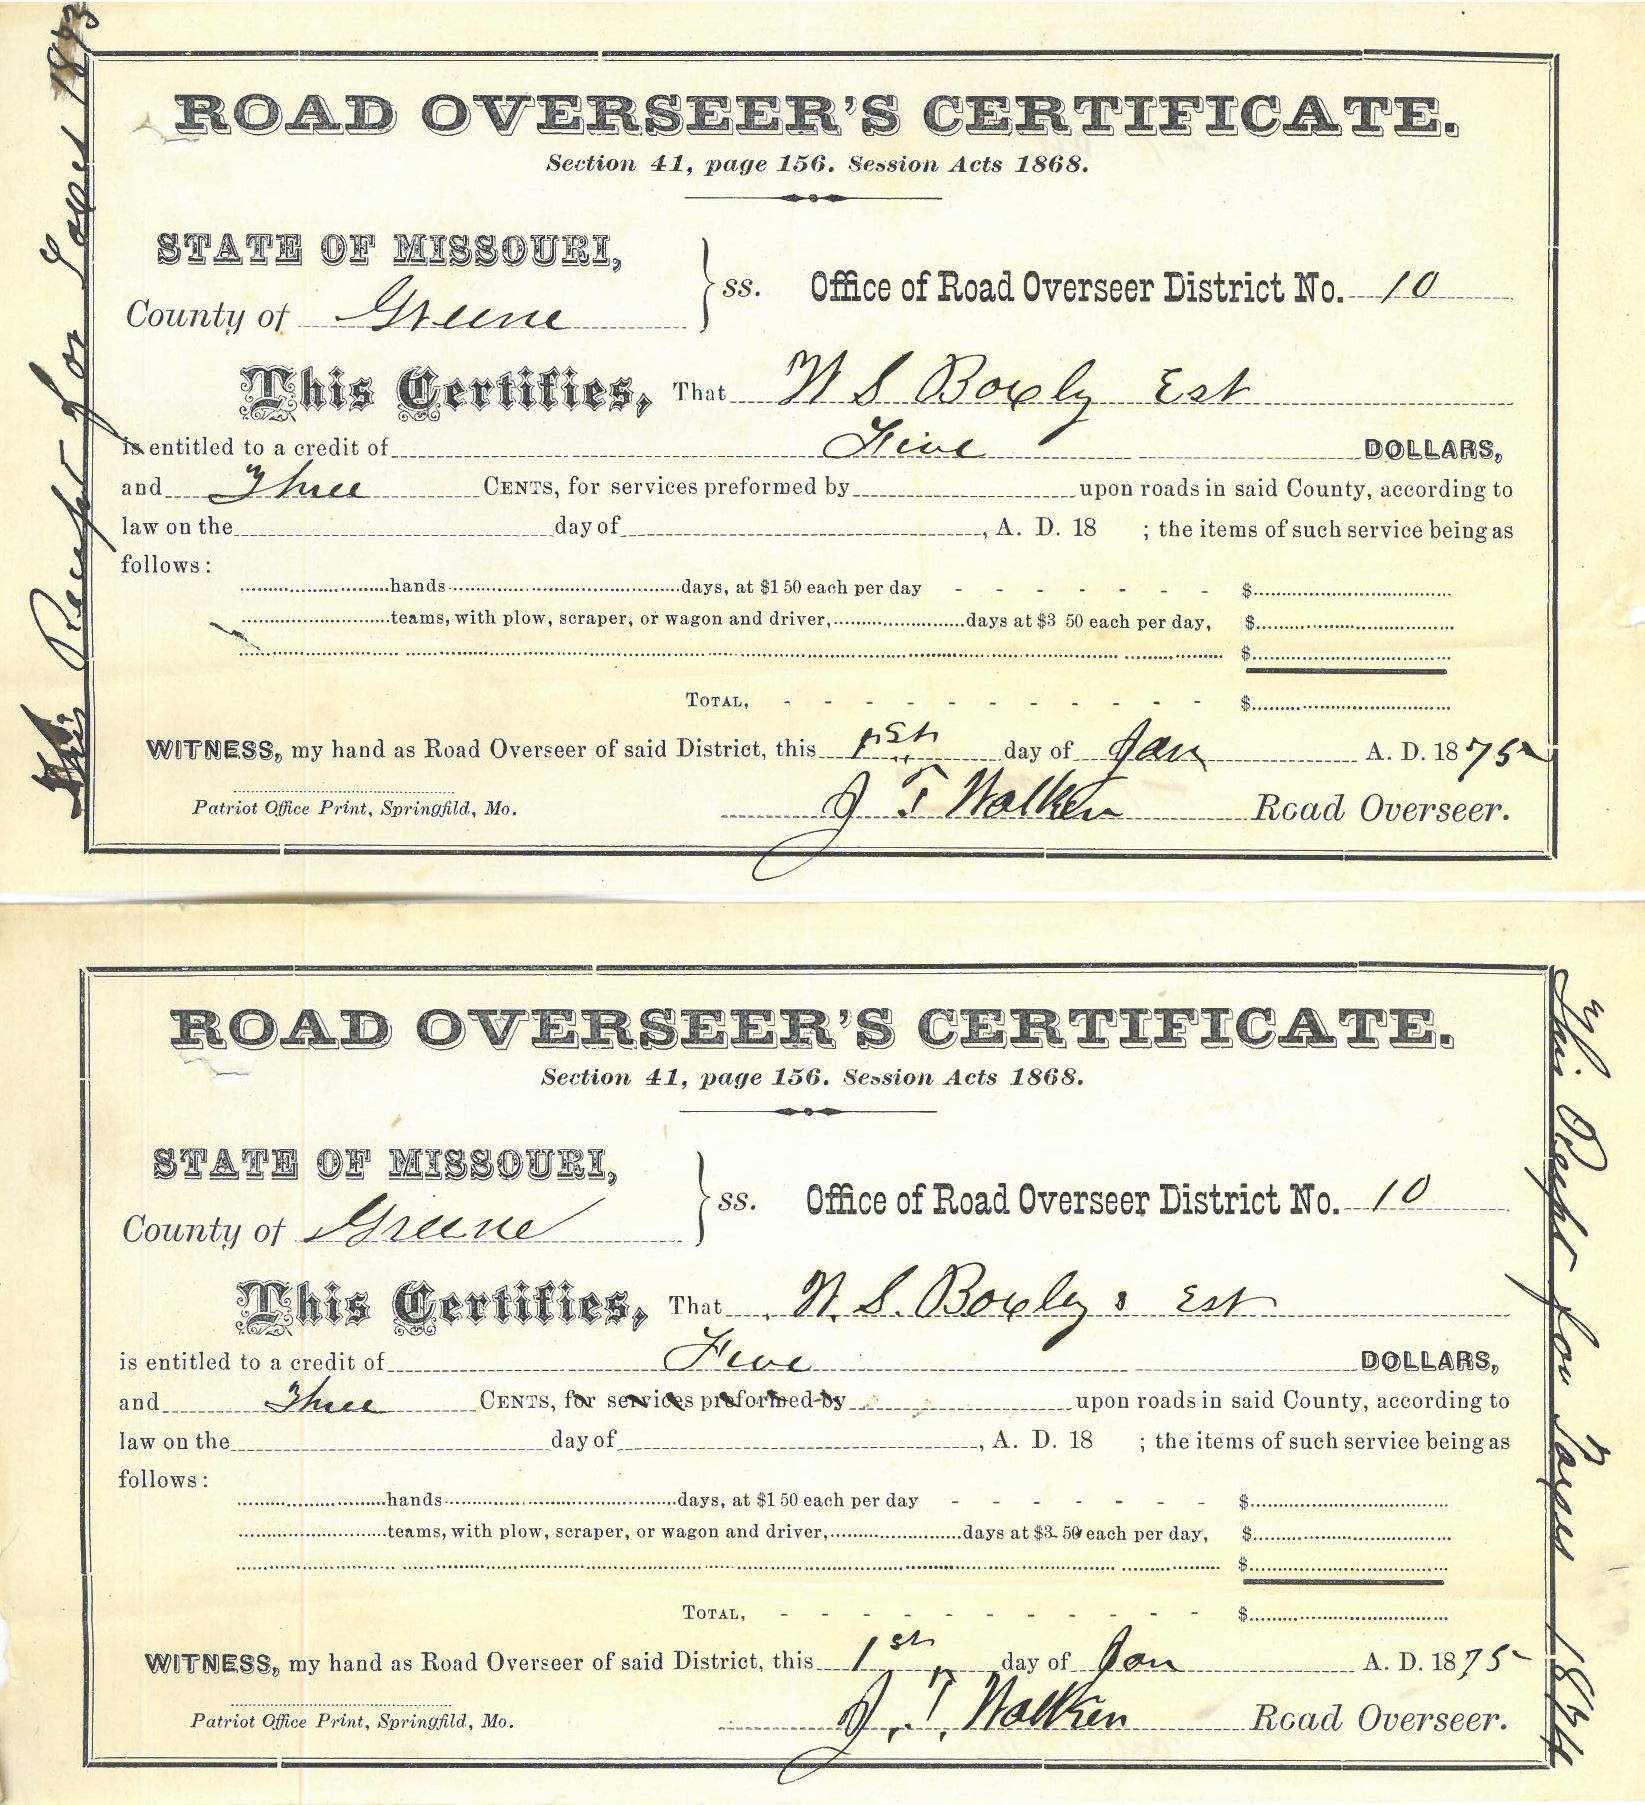 This Receipt for Taxes 1873
ROAD OVERSEER'S CERTIFICATE.
Section 41, page 156. Session Acts 1868.
STATE OF MISSOURI,
County of Greene } ss. Office of Road Overseer District No. 10
This Certifies, That W S Boxly Est
is entitled to a credit of Five DOLLARS,
and Three CENTS, for services preformed by upon roads in said County, according to
law on the day of , A. D. 18 ; the items of such service being as
follows:
hands days, at $1 50 each per day - - - - - - - $
teams, with plow, scraper, or wagon and driver, days at $3 50 each per day, $
$
TOTAL, - - - - - - - - - - - $
WITNESS, my hand as Road Overseer of said District, this 1st day of Jan A. D. 1875
Patriot Office Print, Springfild, Mo. J T Walker Road Overseer.
ROAD OVERSEER'S CERTIFICATE.
Section 41, page 156. Session Acts 1868.
STATE OF MISSOURI,
County of Greene } ss. Office of Road Overseer District No. 10
This Certifies, That W. S. Boxly Est
is entitled to a credit of Five DOLLARS,
and Three CENTS, for services preformed by upon roads in said County, according to
law on the day of , A. D. 18 ; the items of such service being as
follows:
hands days, at $1 50 each per day - - - - - - - $
teams, with plow, scraper, or wagon and driver, days at $3 50 each per day, $
$
TOTAL, - - - - - - - - - - - $
WITNESS, my hand as Road Overseer of said District, this 1st day of Jan A. D. 1875
Patriot Office Print, Springfild, Mo. J. T. Walker Road Overseer.
This Receipt for Taxes 1874